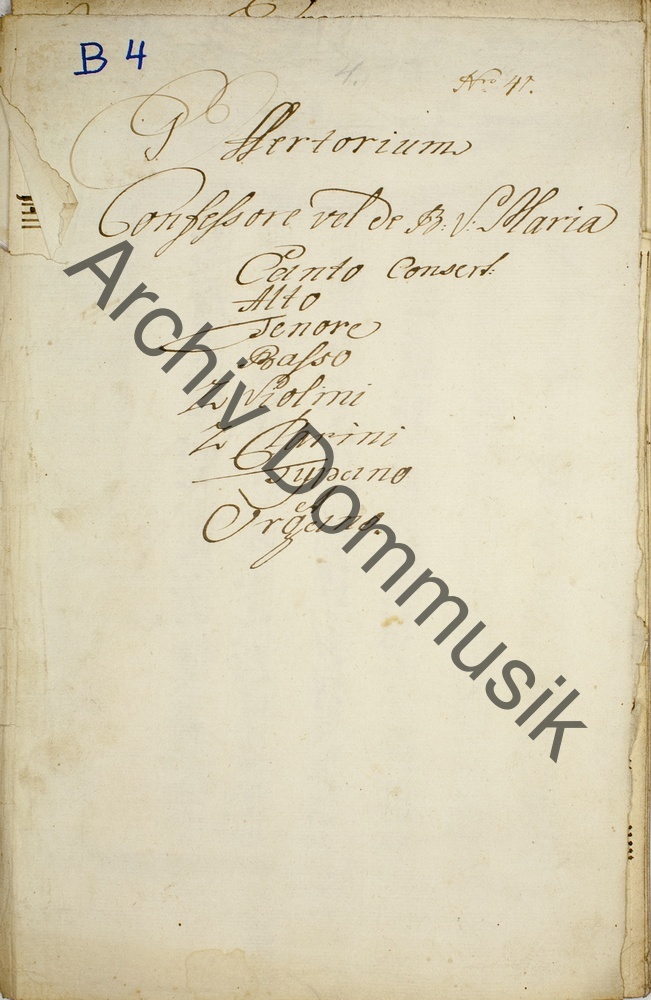 B 4
4.
Nro 41.
Offertorium
Confessore vel de B: V: Maria
Canto Consert:
Alto
Tenore
Basso
2 Violini
2 Clarini
Tympano
et
Organo.
Archiv Dommusik